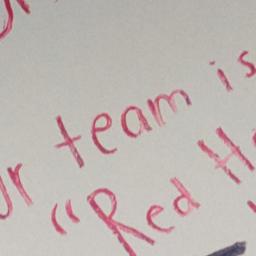 ur team is
"Red H